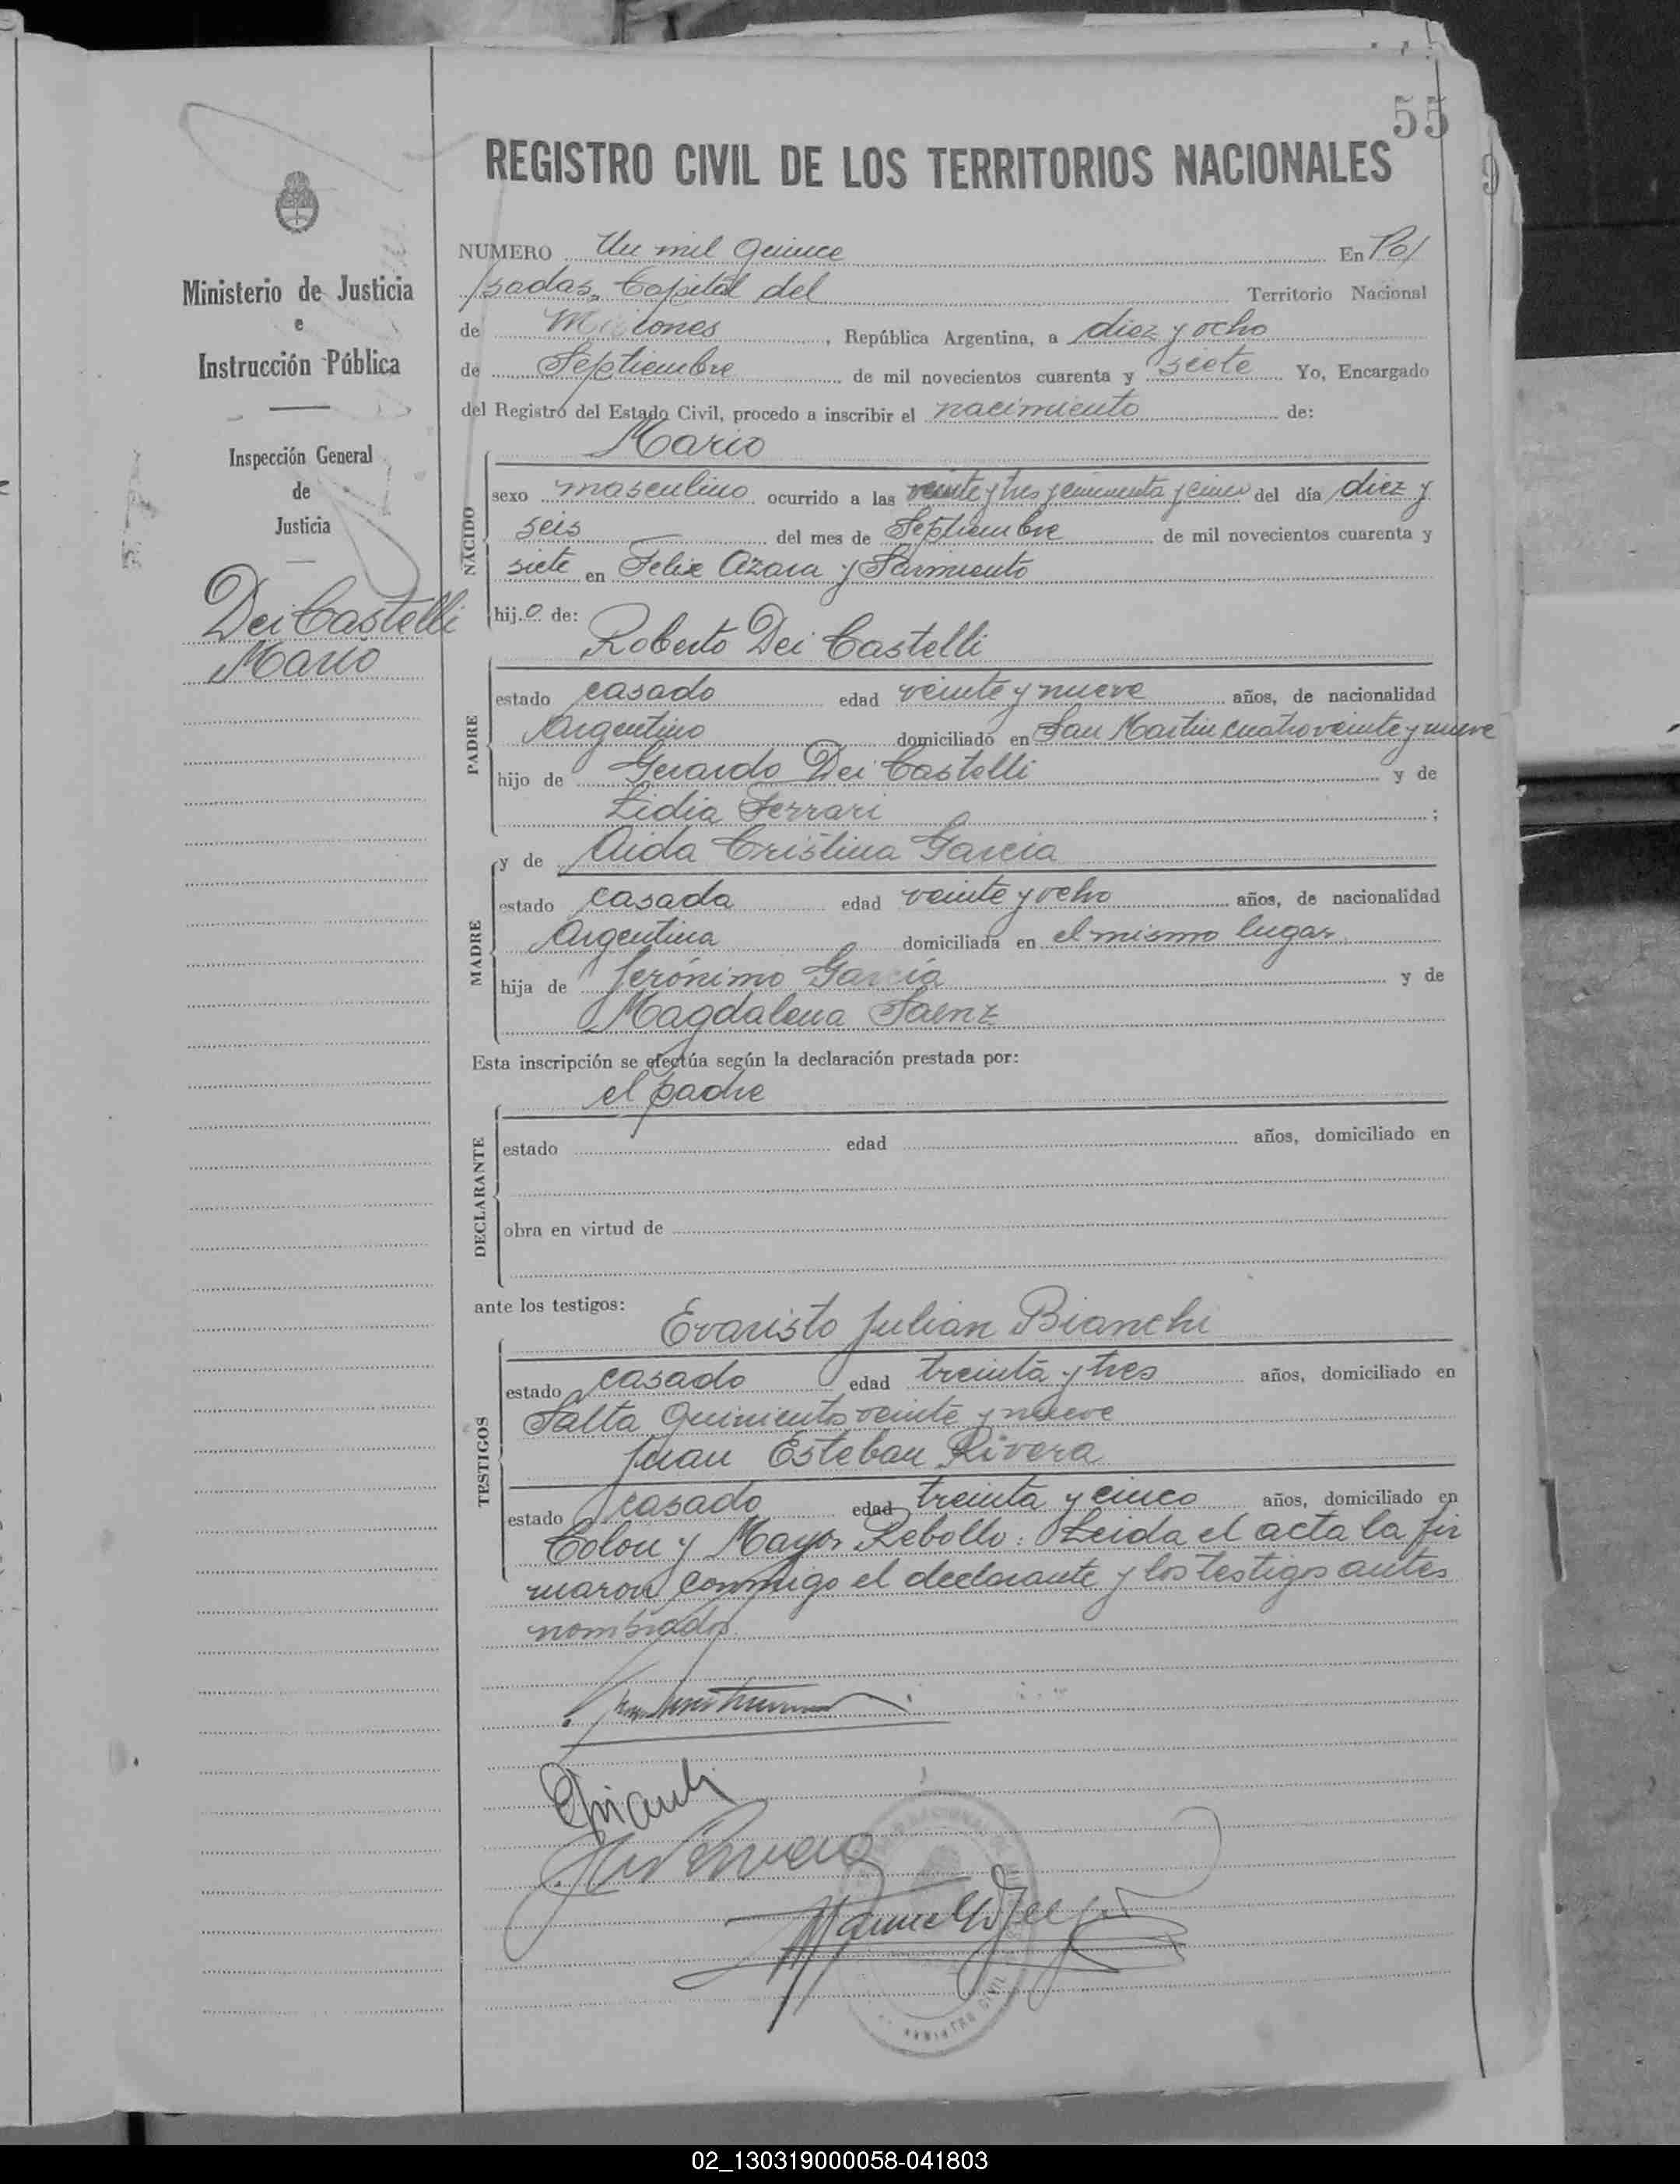 55
REGISTRO CIVIL DE LOS TERRITORIOS NACIONALES
9
Ministerio de Justicia
e
Instrucción Pública
Inspección General
de
Justicia
Dei Castelli
Mario
NUMERO Un mil quince En Po/
/sadas, Capital del Territorio Nacional
de Misiones, República Argentina, a diez y ocho
de Septiembre de mil novecientos cuarenta y siete Yo, Encargado
del Registro del Estado Civil, procedo a inscribir el nacimiento de:
Mario
NACIDO
sexo masculino ocurrido a las veinte y tres y cincuenta y cinco del día diez y
seis del mes de Septiembre de mil novecientos cuarenta y
siete en Felix Azara y Sarmiento
hijo de:
Roberto Dei Castelli
PADRE
estado casado edad veinte y nueve años, de nacionalidad
Argentino domiciliado en San Martin cuatro veinte y nueve
hijo de Gerardo Dei Castelli y de
Lidia Ferrari ;
y de Aida Cristina Garcia
MADRE
estado casada edad veinte y ocho años, de nacionalidad
Argentina domiciliada en el mismo lugar
hija de Jerónimo García y de
Magdalena Saenz
Esta inscripción se efectúa según la declaración prestada por:
el padre
DECLARANTE
estado edad años, domiciliado en
obra en virtud de
ante los testigos:
Evaristo Julian Bianchi
TESTIGOS
estado casado edad treinta y tres años, domiciliado en
Salta Quinientos veinte y nueve
Juan Esteban Rivera
estado casado edad treinta y cinco años, domiciliado en
Colon y Mayor Rebollo: Leida el acta la fir
maron conmigo el declarante y los testigos antes
nombrados
REGISTRO CIVIL
02_130319000058-041803